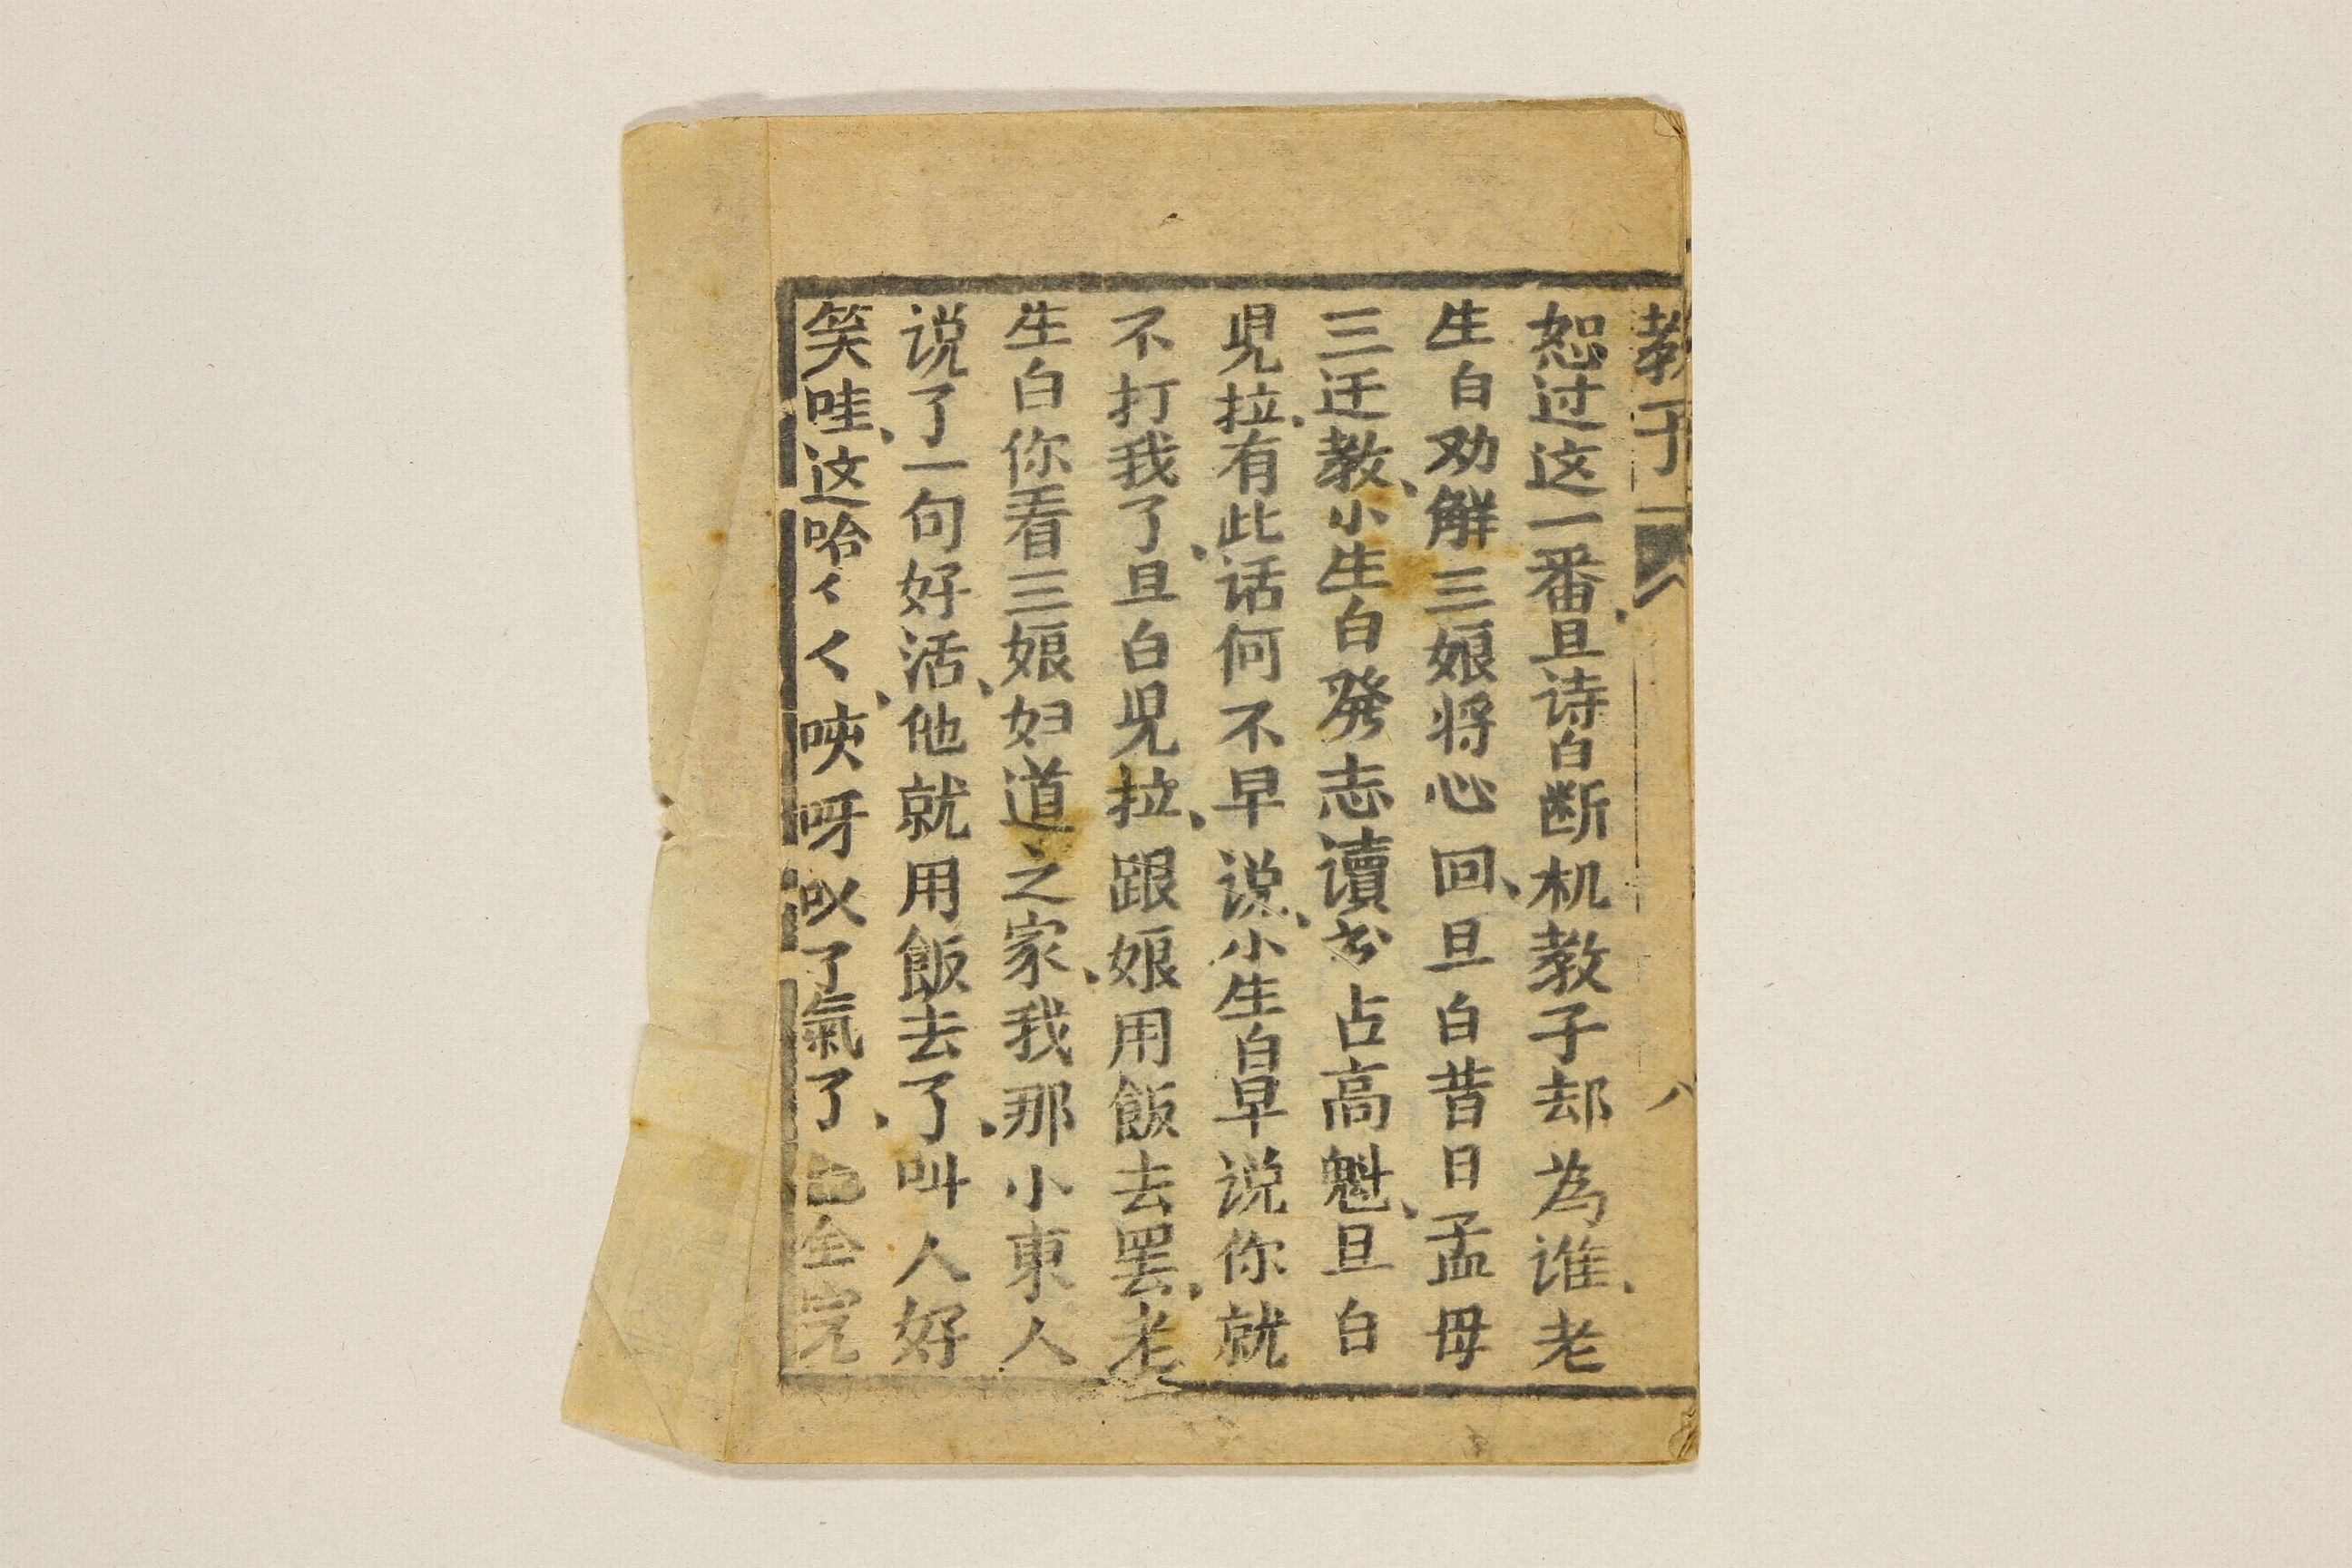 教子
八
恕过这一番旦诗白断机教子却為谁老
生白劝觧三娘将心回旦白昔日孟母
三迁教小生白發志读书占高魁旦白
児拉有此话何不早说小生白早说你就
不打我了旦白児拉跟娘用飯去罢老
生白你看三娘妇道之家我那小東人
说了一句好活他就用飯去了叫人好
笑哇这哈〻〻㖞呀叹了氣了 全完